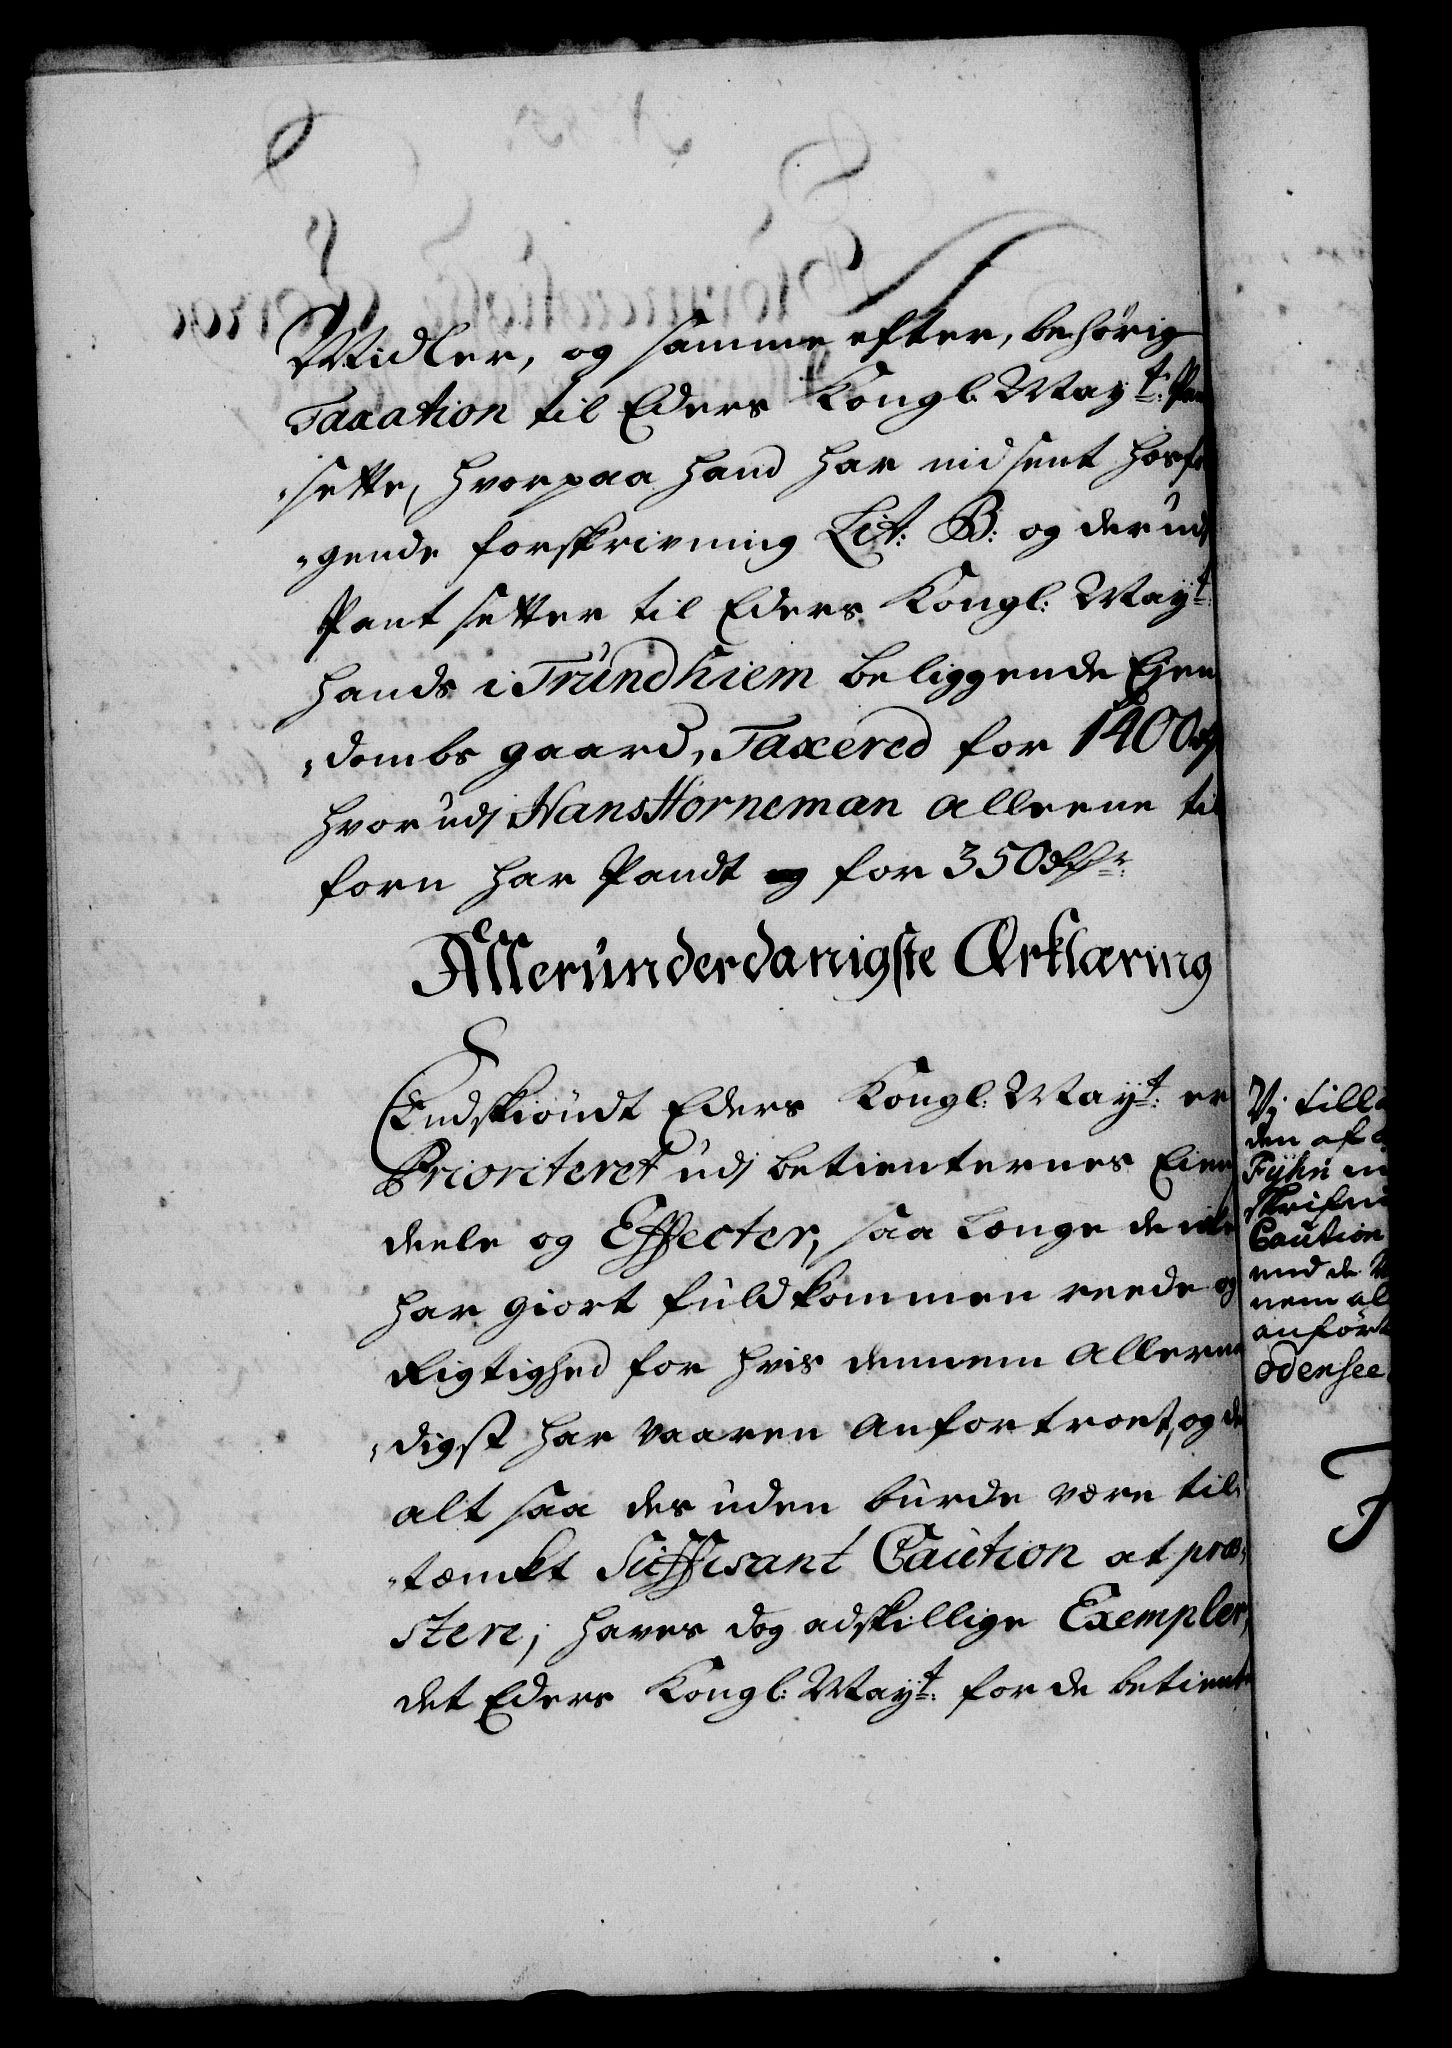 Midler, og samme efter, behörig
Taxation til Eders Kongl: May:t Pan
"sette, hvorpaa hand har indsent hosfø
"gende forskrivning Lit: B: og derudj
Pant setter til Eders Kongl: May:t
hands i Trundhiem beliggende Ejen
"dombs gaard, Taxered for 1400 rdr
hvorudj Hans Horneman alleene til
forn har Pandt for 350 rdr:
Allerunderdanigste Erklæring
Endskiöndt Eders Kongl: May:t er
Prioriteret udj betienternes Eien
deele og Effecter, saa længe de icke
har giort fuldkommen reede og
Rigtighed for hvis dennem Allerna
"digst har vaaren Anfortroet, og de
alt saa des uden burde være til
"tænckt Suffisant Caution at præ
stere; haves dog adskillige Exempler,
det Eders Kongl: May:t for de betiente
Vj till
den af
Fyhn in
skrifni
Caution
end de
nem al
anført
Odensee